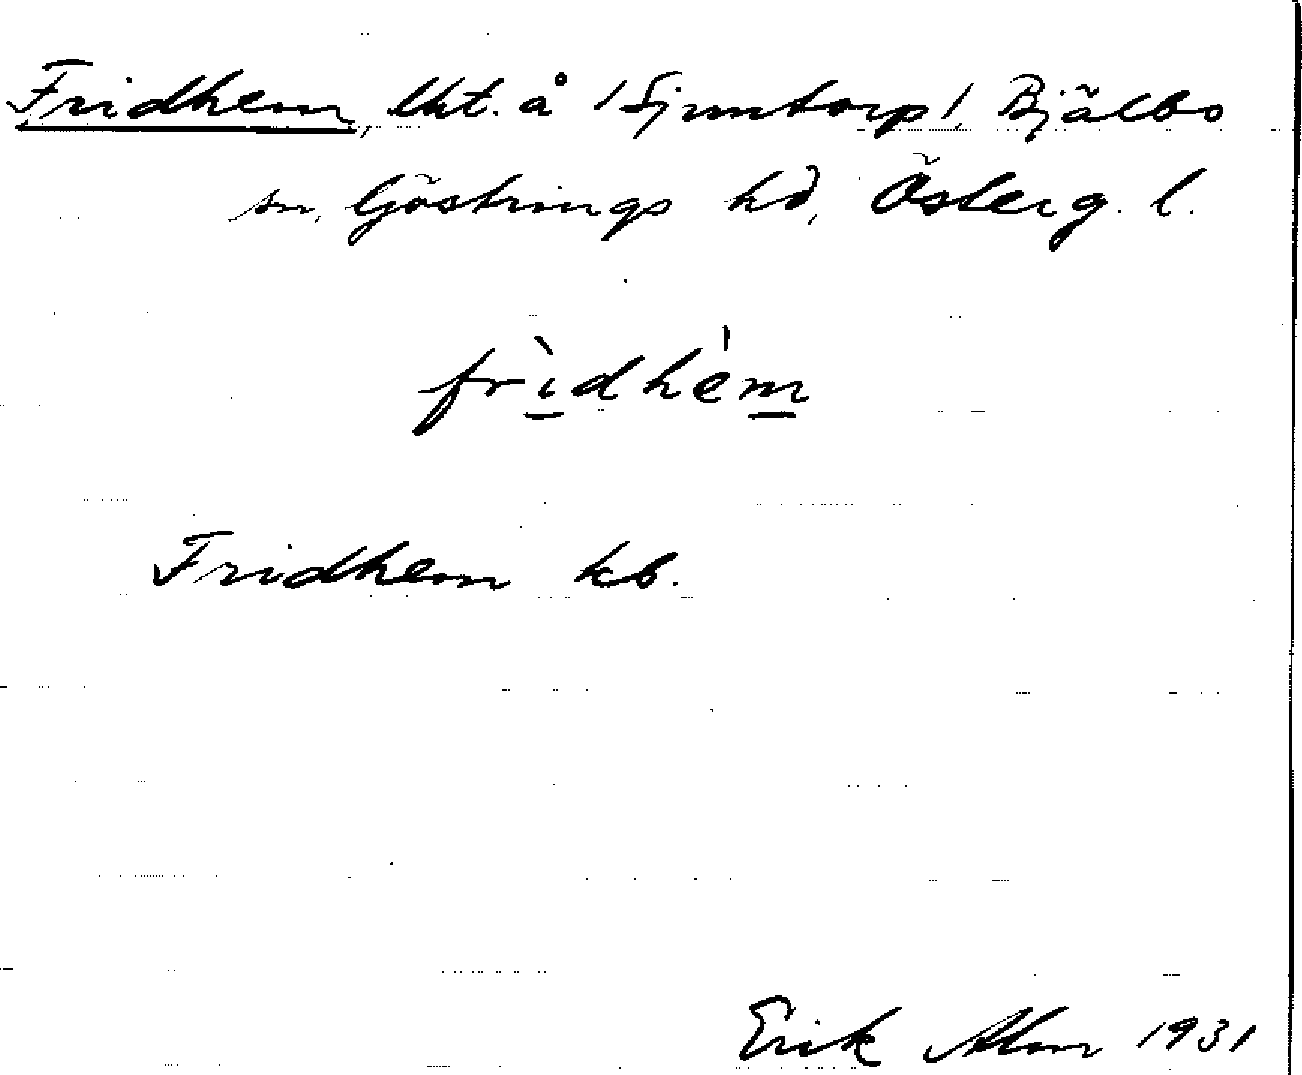 Fridhem, lht. å /Sjuntorp/, Bjälbo
sn, Göstrings hd, Österg. l.
frìdhe̍m
Fridhem kb.
Erik Alm 1931